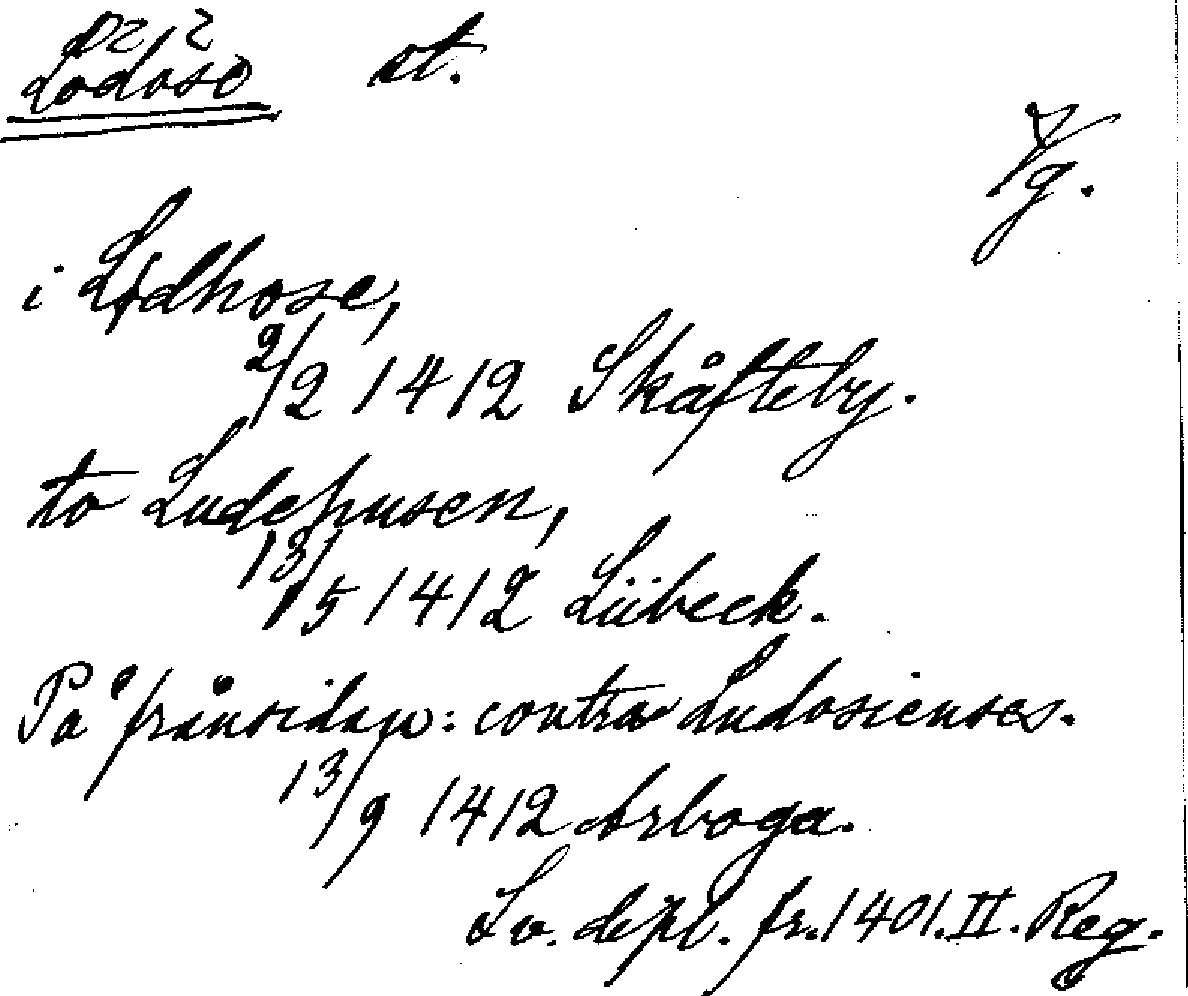 Lödöse st.
Vg.
i Lødhose,
2/2 1412 Skåfteby.
to Ludehusen,
13/5 1412 Lübeck.
På frånsidan: contra Ludosienses.
13/9 1412 Arboga.
Sv. dipl. fr. 1401. II. Reg.